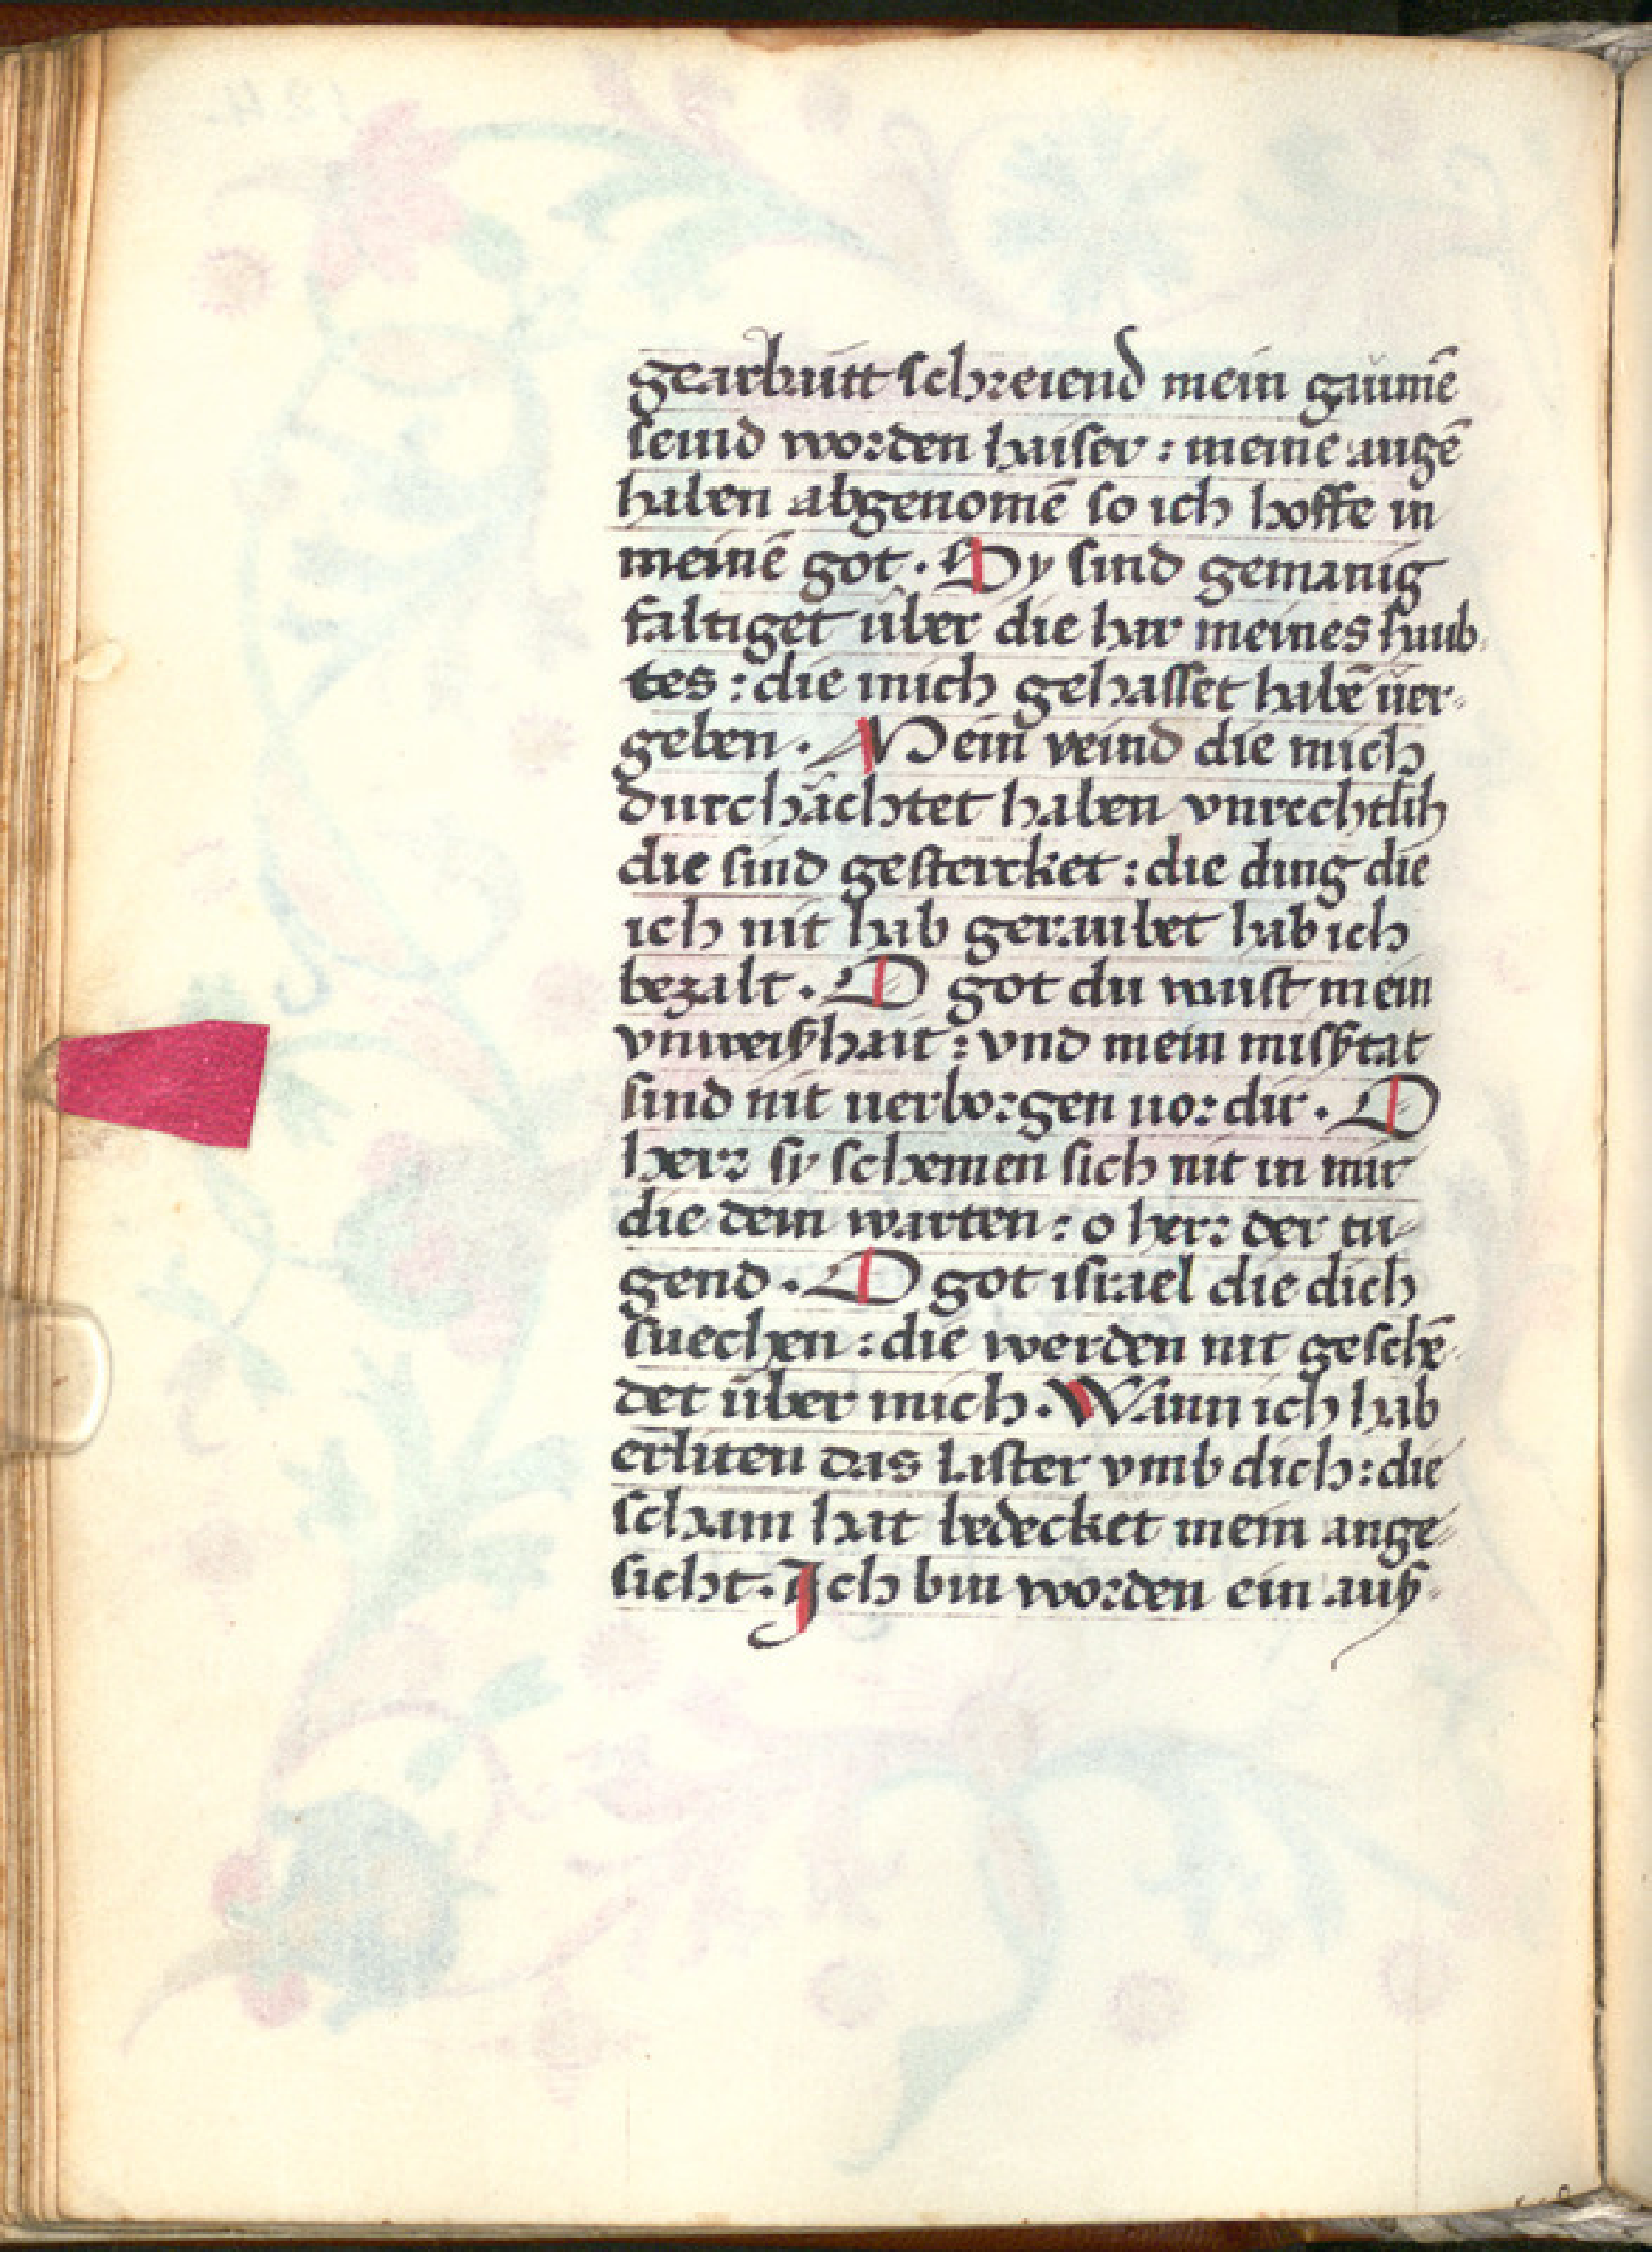 gearbaitt schreiend mein gaumē
seind worden haiser : meine augē
haben abgenomē so ich hoffe in
meinē got . Sy sind gemanig
faltiget über die har meines haub
tes : die mich gehasset habē uer-
geben . Mein veind die mich
durchächtet haben vnrechtlih
die sind gestercket : die ding die
ich nit hab geraubet hab ich
bezalt . O got du waist mein
vnweißhait : vnd mein mißtat
sind nit uerborgen uor dir . O
herr sy schemen sich nit in mir
die dein warten : o herr der tu-
gend . O got israel die dich
suechen : die werden nit geschē-
det über mich . Wann ich hab
erliten das laster vmb dich : die
scham hat bedecket mein ange-
sicht . Ich bin worden ein auß-